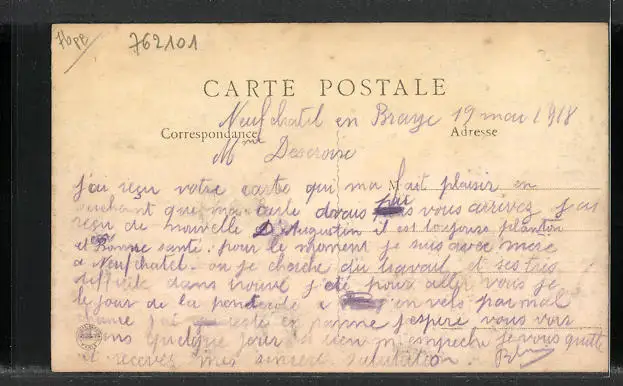 7bpe
762101
CARTE POSTALE
Neufchatel en Braye 19 mai 1918
Correspondance
Adresse
Mme Descroix
j'ai reçu votre carte qui ma fait plaisir en
sachant que ma carte vous arrivez j'ai
reçu de nouvelle D'Augustin il est toujours planton
et Bonne santé. pour le moment je suis avec
a Neufchatel ou je cherche du travail et ses tres
difficile dans trouvé j'été pour aller vous je
le jour de la pentecote en velo par mal
j'ai resté en panne j'espère vous voir
dans quelque jours si rien m'empeche je vous quitte
et recevez mes sincere salutation